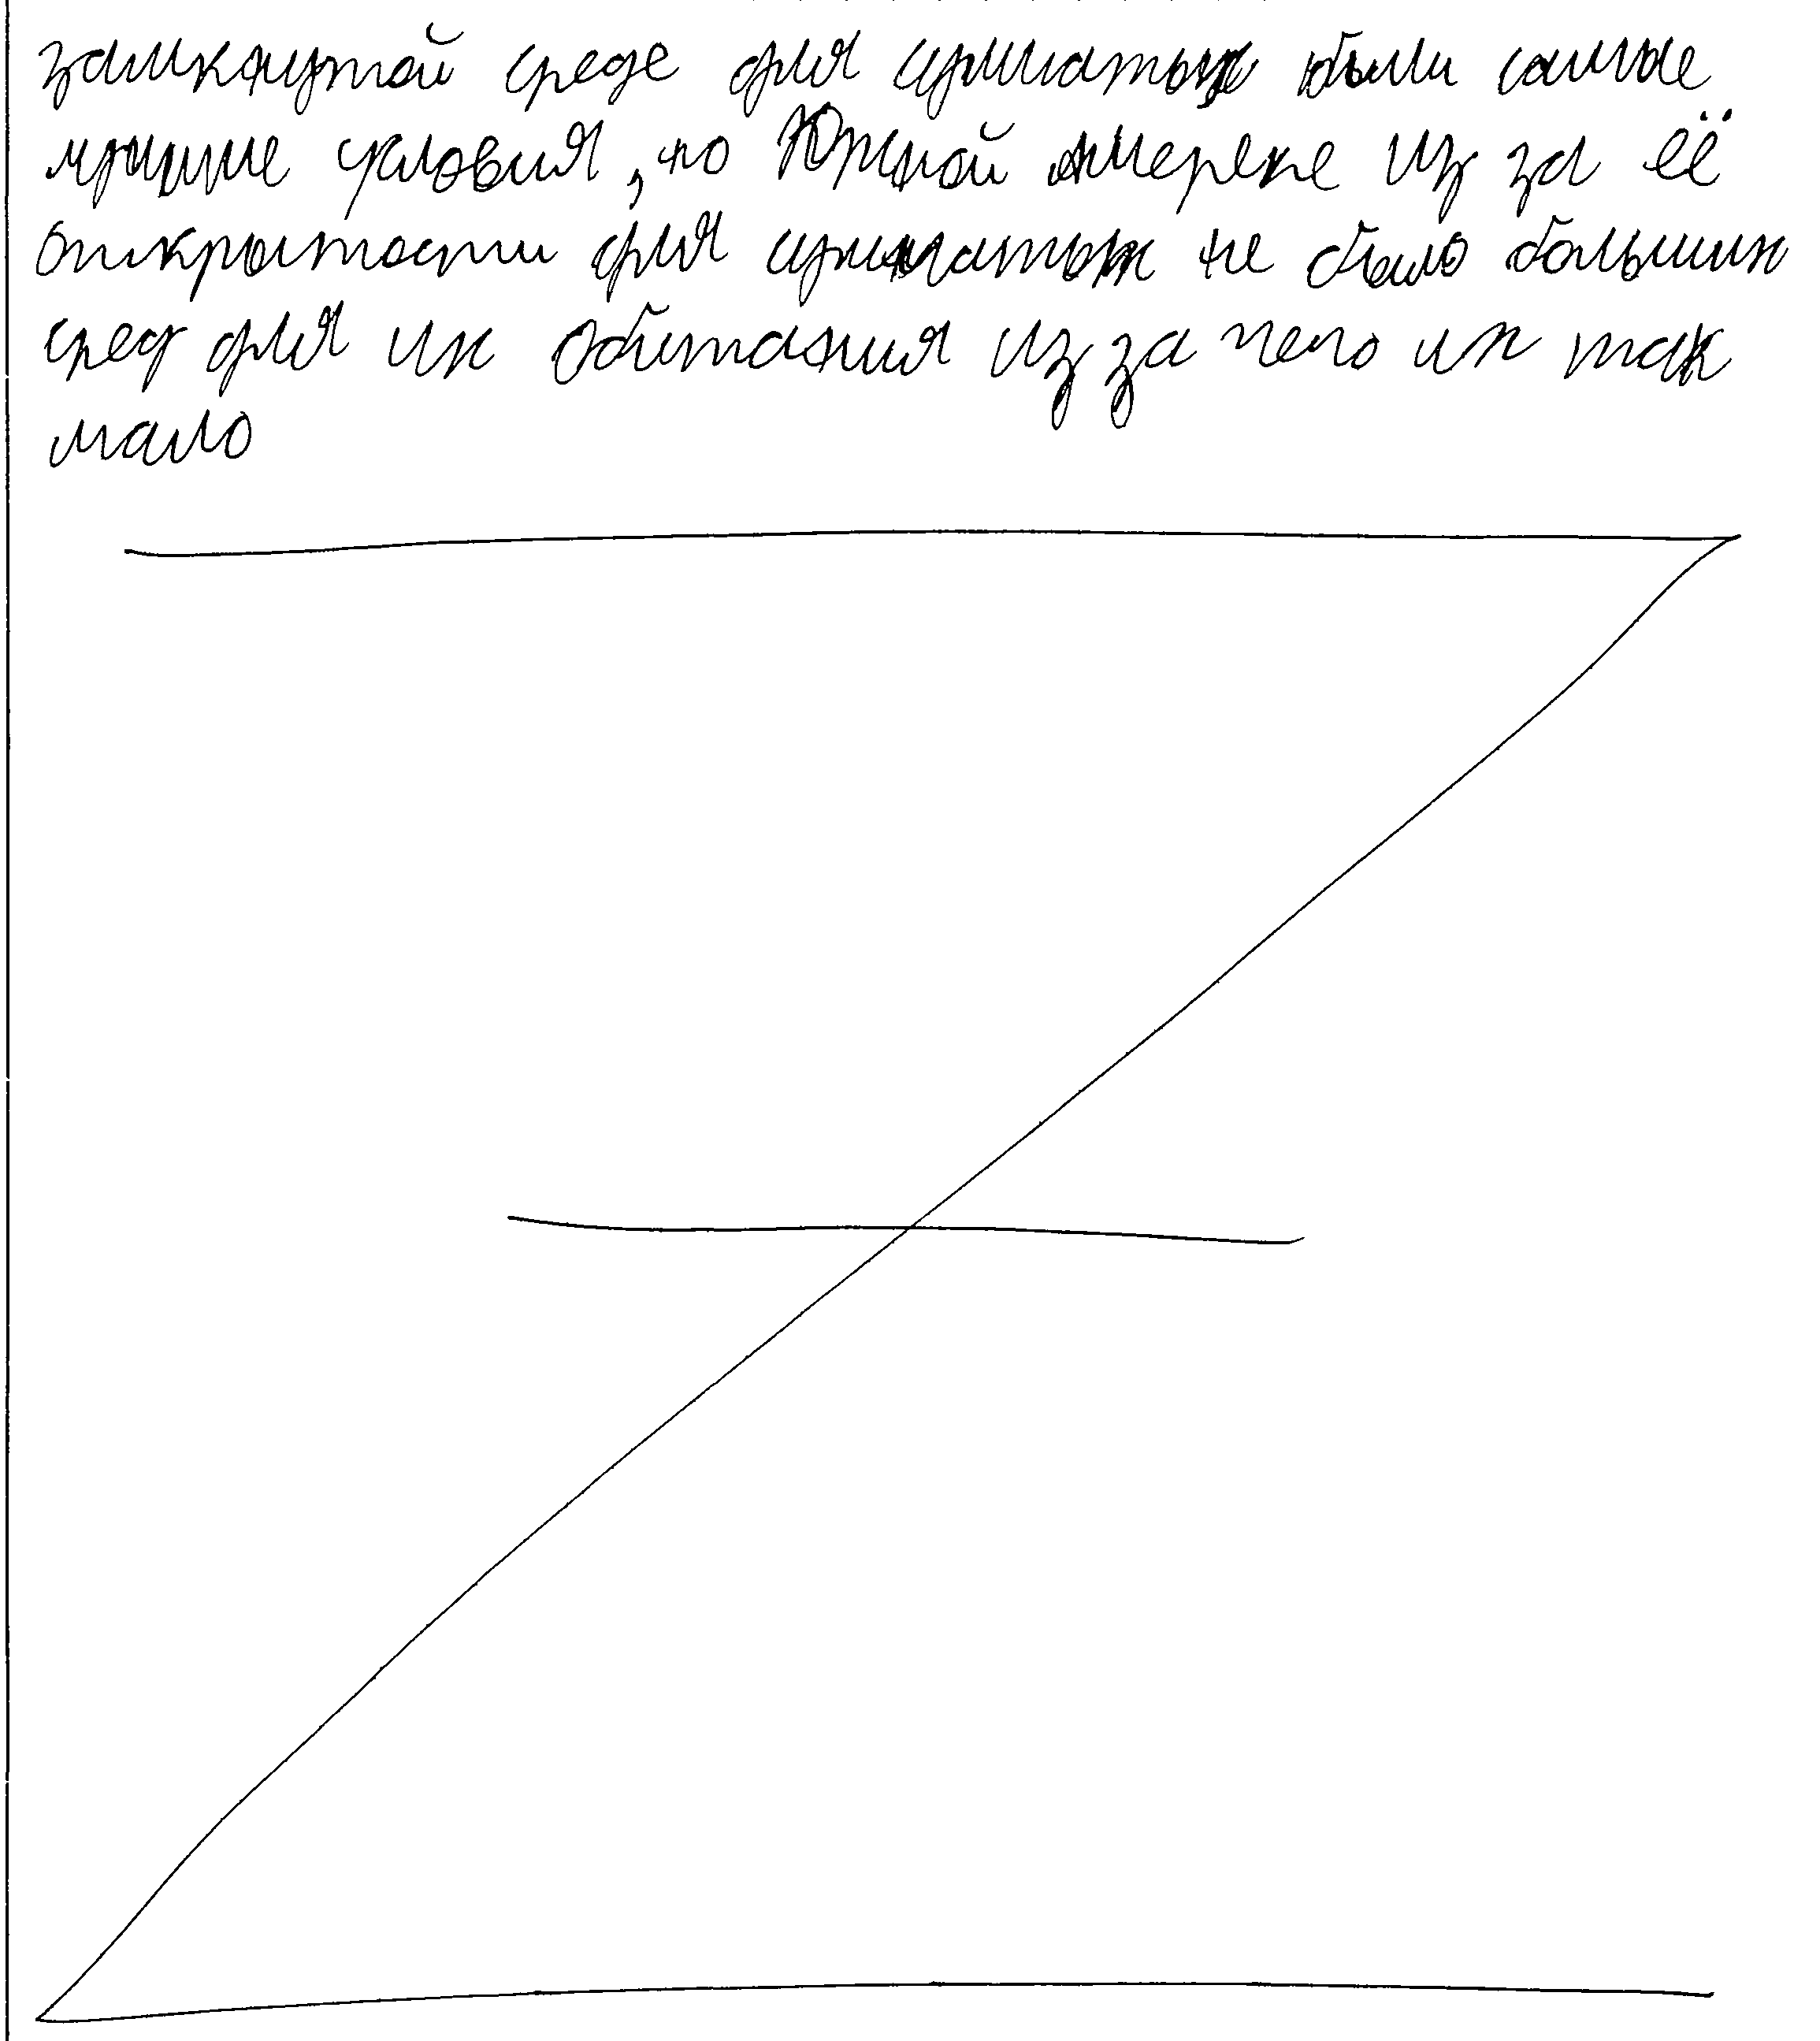 замкнутой среде для цриматых были самые
лучшие условия, но Южной америке из за её
открытости для цриматых не было больших
сред для их обитания из за чего их так
мало